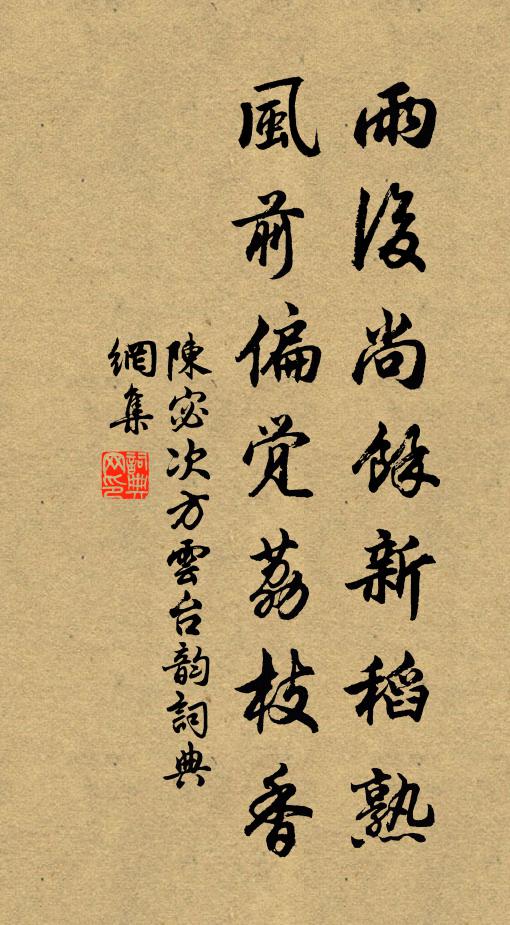 雨後尚餘新稻熟
風前偏覺荔枝香
陳宓次方雲台韵詞典
網集
詞典
网印